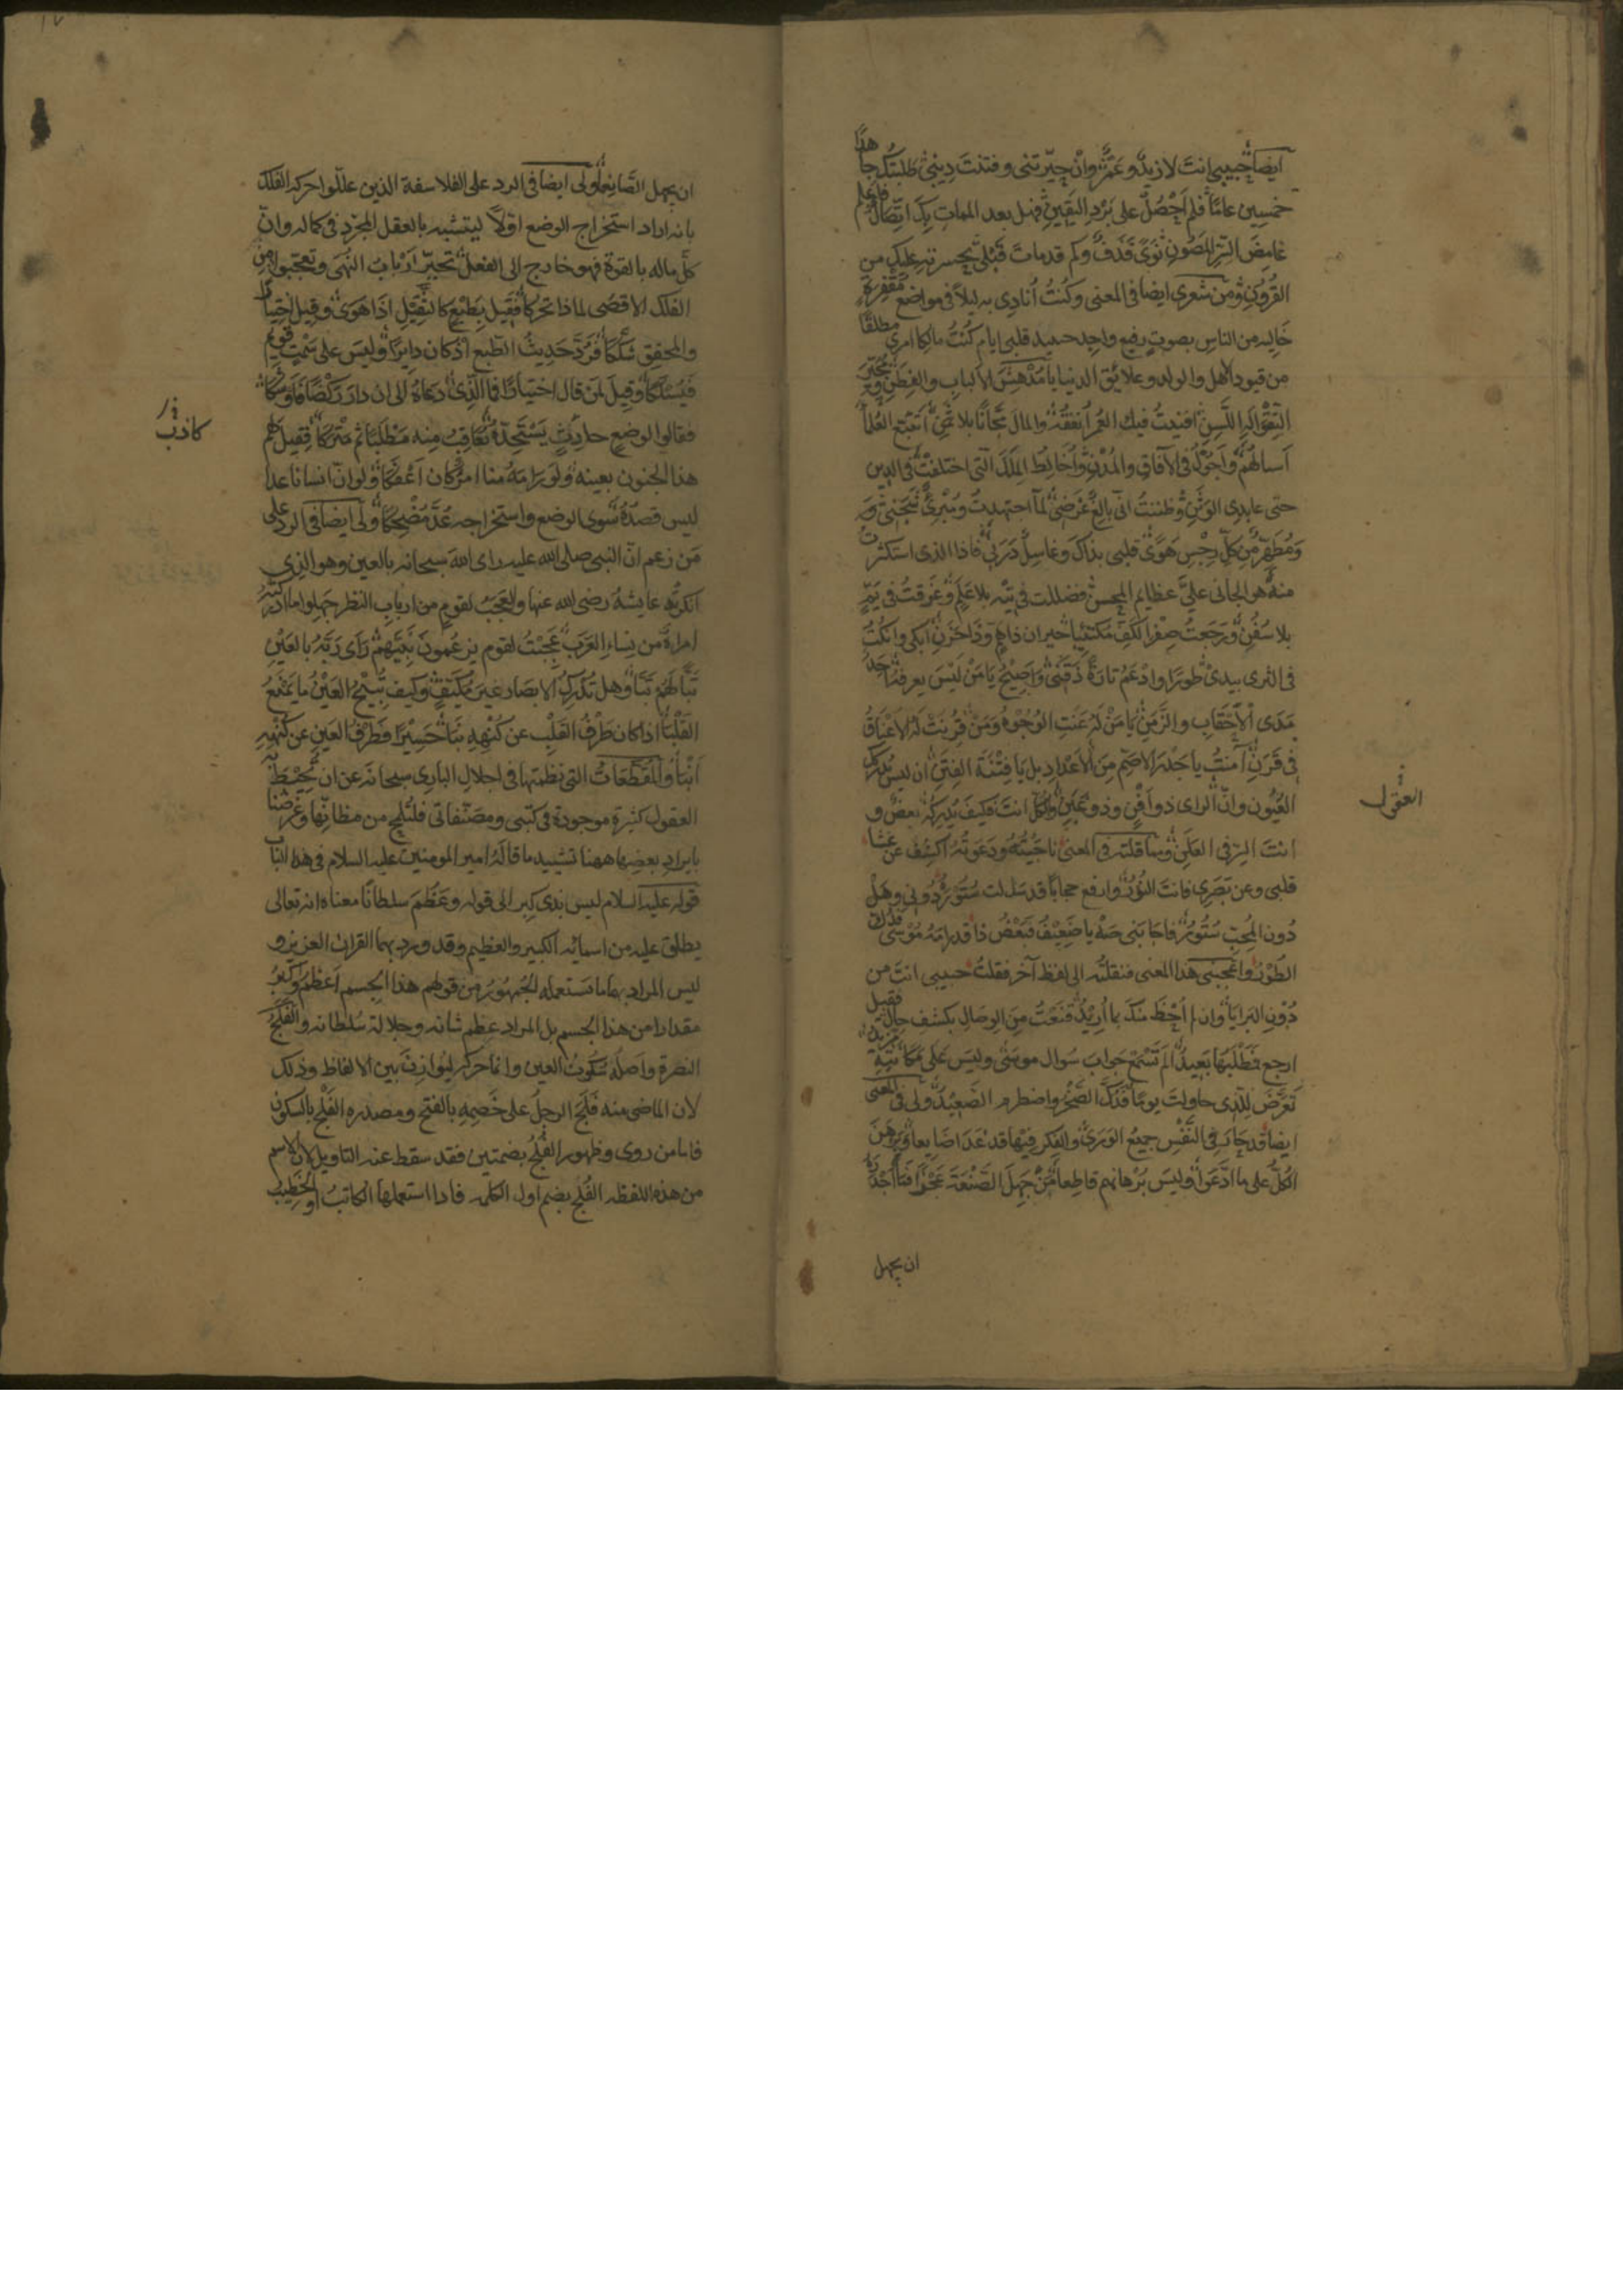 ايضا حبيبي انت لا زيد وعمر وان حيرتني وفتنت ديني طلبتك جاهدا
خمسين عاما فلم احصل على برد اليقين فهل بعد الممات بك اتصال فاعلم
غامض السر المصون نوى قذف وكم قد مات قبلي بحسرته عليك من
القرون ومن شعري ايضا في المعنى وكنت انادي به ليلا في مواضع مقفرة
خاليه من الناس بصوت رفيع واجد حبيد قلبي ايام كنت مالكا امري مطلقا
من قيود الاهل والولد وعلايق الدنيا يا مدهش الالباب والفطن ومحير
التقوالة اللسن افنيت فيك العمر انفقه والمال مجانا بلا ثمن اتتبع العلماء
اسالهم واجول في الافاق والمدن واخالط الملل التي اختلفت في الدين
حتى عابدي الوثن وظننت اني بالغ غرضي لما اجتهدت ومبرئ شجني و
ومطهر من كل رجس هوى قلبي بذاك وغاسل درني فاذا الذي استكثرت
منه هو الجاني علي عظايم المحن فضللت في تيه بلا علم وغرقت في يم
بلا سفن ورجعت صفر الكف مكتئبا حيران ذا هم وذا حزن ابكي وانكت
في الثرى بيدي طورا وادعم تارة ذقني واصيح يا من ليس يعرفه احد
مدى الاحقاب والزمن يا من له عنت الوجوه ومن قرنت له الاعناق
في قرن آمنت يا جذر الاصم من الاعداد بل يا فتنة الفتن ان ليس تدركك
العيون وان الراى ذو افن وذو غبن والكل انت فكيف يدركه بعض و
انت السر في العلن ومما قلته في المعنى ناجيته ودعوته اكشف عن عشا
قلبي وعن بصري فانت النور وارفع حجابا قد سدلت ستوره دوني وهل
دون المحب ستور فاجابني صه يا ضعيف فبعض ذا قد رامه موسى فدك
الطور واعجبني هذا المعنى فنقلته الى لفظ آخر فقلت حبيبي انت من
دون البرايا وان لم احظ منك بما اريد قنعت من الوصال بكشف حال فقيل
ارجع فمطلبها بعيد الم تسمع جواب سوال موسى وليس على مكانته مزيد
تعرض للذي حاولت يوما فدك الصخر واضطرم الصعيد ولي في المعنى
ايضا قد حار في النفس جميع الورى والفكر فيها قد غدا ضايعا وبرهن
الكل على ما ادعوا وليس برهانهم قاطعا من جهل الصنعة عجزا فما اجدره
ان يجهل
العقول
ان يجهل الصانعا ولي ايضا في الرد على الفلاسفة الذين عللوا حركة الفلك
بانه اراد استخراج الوضع اولا ليتشبه بالعقل المجرد في كماله وان
كل ماله بالقوة فهو خارج الى الفعل تحير ارباب النهى وتعجبوا من
الفلك الاقصى لماذا تحركا فقيل بطبع كالثقيل اذا هوى وقيل اختيارا
والمحقق شككا فرد حديث الطبع اذ كان دايرا وليس على سمت قويم
فيسلكا وقيل لمن قال اختيارا فما الذي دعاه الى ان دار ركضا فاوشكا
فقالوا لوضع حادث يستجده يعاقب منه مطلبا ثم متركا فقيل لهم
هذا الجنون بعينه ولو رامه منا امرؤ كان اعفكا ولو ان انسانا غدا
ليس قصده سوى الوضع واستخراجه عد مضحكا ولي ايضا في الرد على
من زعم ان النبي صلى الله عليه راى الله سبحانه بالعين وهو الذي
انكرته عايشه رضي الله عنها والعجب لقوم من ارباب النظر جهلوا ما ادركته
امراة من نساء العرب عجبت لقوم يزعمون نبيهم راى ربه بالعين
تبا لهم تبا وهل تدرك الابصار غير مكيف وكيف تبيح العين ما يمنع
القلبا اذا كان طرف القلب عن كنهه نبا حسيرا فطرف العين عن كنهه
انبا والمقطعات التي نظمتها في اجلال الباري سبحانه عن ان تحيط به
العقول كثيرة موجودة في كتبي ومصنفاتي فلتلمح من مظانها وغرضنا
بايراد بعضها ههنا تشييد ما قاله امير المومنين عليه السلام في هذا الباب
قوله عليه السلام ليس بذي كبر الى قوله وعظم سلطانا معناه انه تعالى
يطلق عليه من اسمائه الكبير والعظيم وقد ورد بهما القران العزيز و
ليس المراد بهما ما تستعمله الجمهور من قولهم هذا الجسم اعظم واكبر
مقدارا من هذا الجسم بل المراد عظم شانه وجلالة سلطانه والفلج
النصرة واصله سكون العين وانما حركه ليوازن بين الالفاظ وذلك
لان الماضي منه فلج الرجل على خصمه بالفتح ومصدره الفلج بالسكون
فاما من روى وظهور الفلج بضمتين فقد سقط عنه التاويل لان الاسم
من هذه اللفظه الفلج بضم اول الكلمه فاذا استعملها الكاتب او الخطيب
كاذب